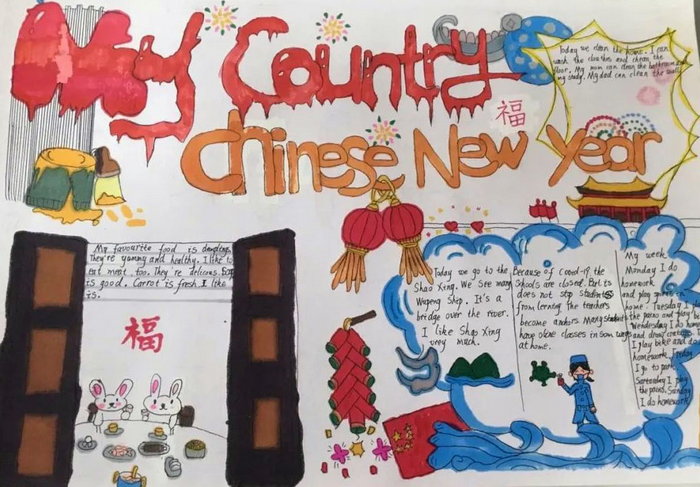 My Country
Chinese New Year
福
Today we clean the home. I can
wash the cloathes and chean the
floor. My mum can clean the bathroom and
my study. My dad can clean the wall.
My favourite food is dumplings.
They're yummy and healthy. I like to
eat meat, too. They're delicious.
is good. Carrot is fresh. I like
is.
福
Today we go to the
Shao Xing. We see many
Wupeng Ship. It's a
bridge over the river.
I like Shao Xing
very much.
Because of covid-19 the
Schools are closed. But is
does not stop students
from lerning the teachers
become anchors. Many students
have oline classes in
at home.
My week
Monday I do
homework
and play
home. Tuesday I
the piano and play
Wendesday I do
and draw
I play bike and do
homework.
I go to park
Saterday I play
the piano. Sunday
I do homework